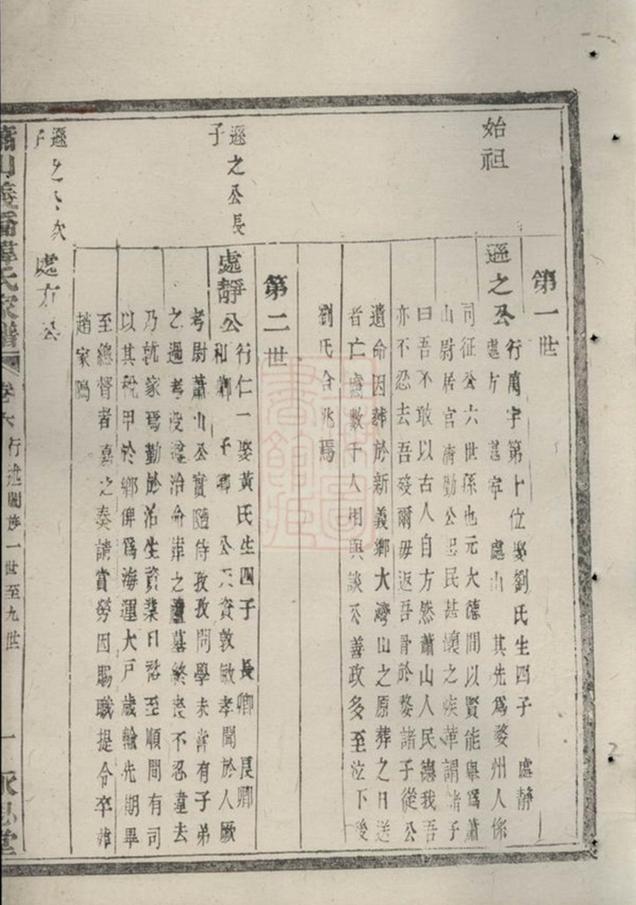 第一世
始祖
遜之公 行萬字第十位娶劉氏生四子 處靜
處方 處寧 處山 其先為婺州人係
司征公六世孫也元大德間以賢能舉為蕭
山尉居官清勤公忠民甚懷之疾革謂諸子
曰吾不敢以古人自方然蕭山人民戀我吾
亦不忍去吾歿爾毋返吾骨於婺諸子從公
遺命因葬於新義鄉大灣山之原葬之日送
者亡慮數千人相與談公善政多至泣下後
劉氏合兆焉
第二世
遜之公長子
處靜公 行仁一娶黃氏生四子 長卿 良卿
和卿 子卿 公天資敦敏孝聞於人厥
考尉蕭山公實隨侍孜孜問學未嘗有子弟
之過考沒遵治命葬之廬墓終喪不忍違去
乃就家焉勤於治生資業日裕至順間有司
以其稅甲於鄉俾為海運大戶歲輸先期畢
至總督者嘉之奏請賞勞因賜職提令卒葬
趙家塢
遜之公次子
處方公
蕭山義橋韓氏家譜 卷六 行述閣族一世至九世 一